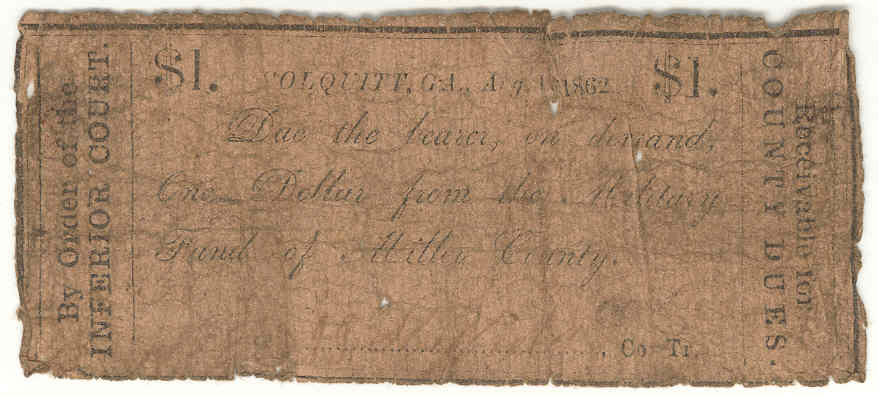 By Order of the
INFERIOR COURT.
$1. COLQUITT, GA., Aug. 1862 $1.
Due the bearer, on demand,
One Dollar from the Military
Fund of Miller County.
Co Tr.
Receivable for
COUNTY DUES.